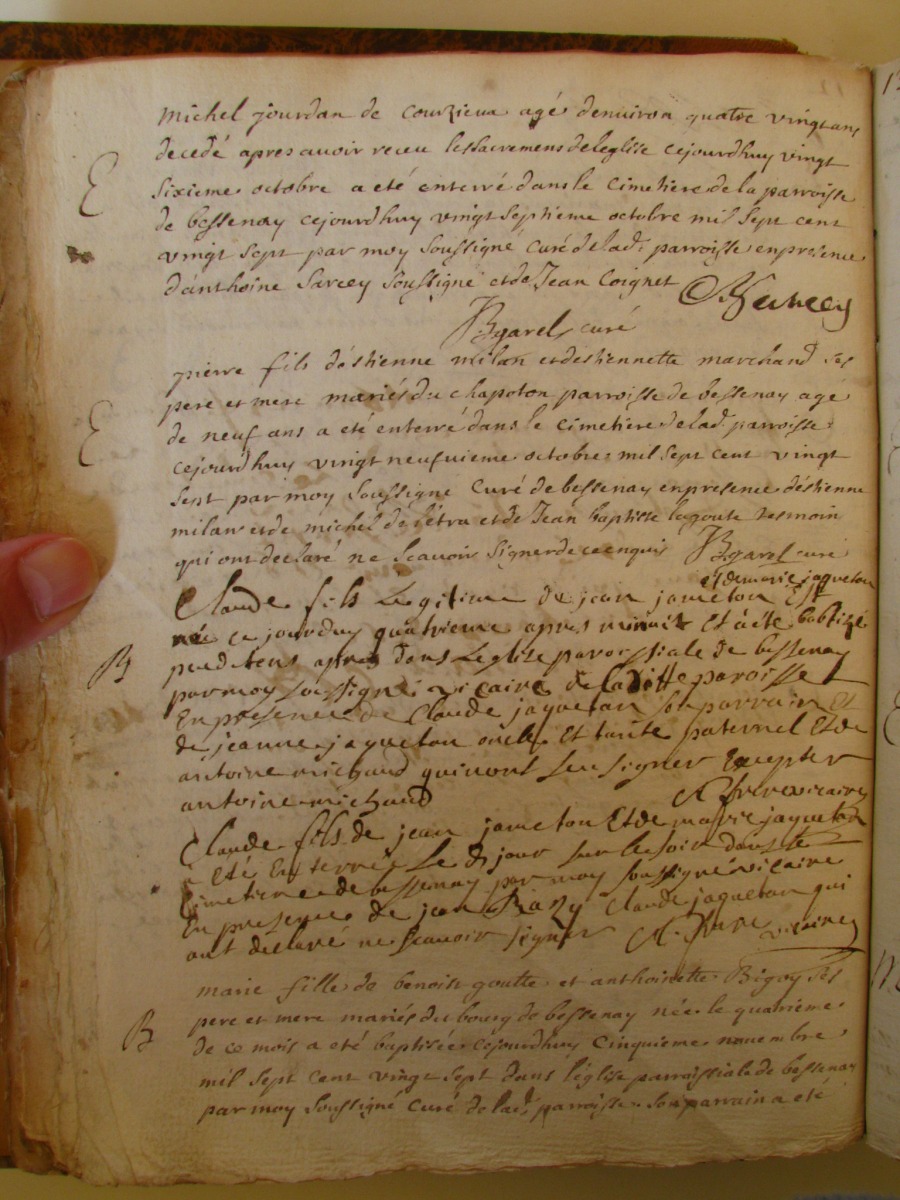 michel jourdan de courzieux agé denuiron quatre vingt ans
decedé apres auoir receu les sacremens de leglise cejourdhuy vingt
E
sixieme octobre a eté enterré dans le cimetiere de la parroisse
de bessenay cejourdhuy vingt septieme octobre mil sept cent
vingt sept par moy soussigné curé de lad. parroisse en presence
d'anthoine sarcey soussigné et de Jean Coignet A Sarcey
Bgarel curé
pierre fils d'estienne milan et destiennette marchand ses
pere et mere mariés du chapoton parroisse de bessenay agé
E
de neuf ans a eté enterré dans le cimetiere de lad. parroisse
cejourdhuy vingt neufuieme octobre mil sept cent vingt
sept par moy soussigne Curé de bessenay en presence d'estienne
milan et de michel de l'étra et de Jean baptiste lagoute tesmoin
qui ont declaré ne scauoir signer de ce enquis Bgarel curé
et de marie jaqueton
Claude fils Legitime de jean jameton Est
né ce jourduy quatrieme apres minuit Et à eté baptizé
B
peu de tens apres dans Leglise paroissiale de bessenay
par moy soussigné vicaire de laditte paroisse
En presence de Claude jaqueton son parrain Et
de jeanne jaqueton oncle Et tante paternel Et de
antoine michaud qui nont seu signer Excepter
antoine michaud A frere vicaire
Claude fils de jean jameton Et de marie jaqueton
a Eté Enterré Le d jour sur le soir dans le
cimetiere de bessenay par moy soussigné vicaire
En presence de jean Claude jaqueton qui
ont declaré ne scauoir signer A. frere vicaire
marie fille de benoist goutte et anthoinette Bigoy ses
pere et mere mariés du bourg de bessenay née le quatrieme
B
de ce mois a eté baptisée cejourdhuy cinquieme nouembre
mil sept cent vingt sept dans l'églisse parroissiale de bessenay
par moy soussigné curé de lad. parroisse. son parrain a eté